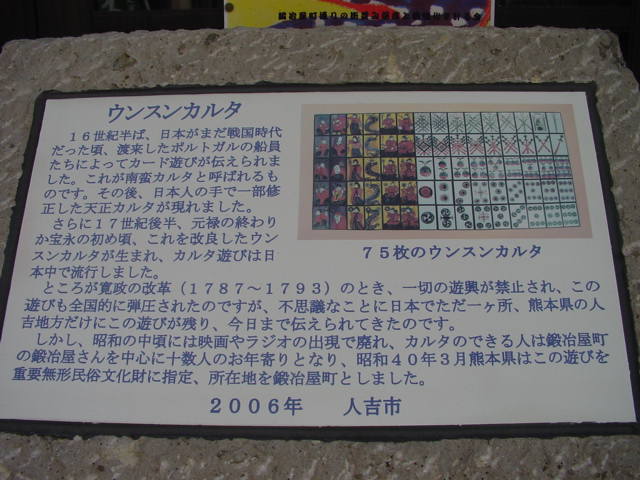 ウンスンカルタ
１６世紀半ば、日本がまだ戦国時代
だった頃、渡来したポルトガルの船員
たちによってカード遊びが伝えられま
した。これが南蛮カルタと呼ばれるも
のです。その後、日本人の手で一部修
正した天正カルタが現れました。
さらに１７世紀後半、元禄の終わり
か宝永の初め頃、これを改良したウン
スンカルタが生まれ、カルタ遊びは日
本中で流行しました。
７５枚のウンスンカルタ
ところが寛政の改革（１７８７～１７９３）のとき、一切の遊興が禁止され、この
遊びも全国的に弾圧されたのですが、不思議なことに日本でただ一ヶ所、熊本県の人
吉地方だけにこの遊びが残り、今日まで伝えられてきたのです。
しかし、昭和の中頃には映画やラジオの出現で廃れ、カルタのできる人は鍛冶屋町
の鍛冶屋さんを中心に十数人のお年寄りとなり、昭和４０年３月熊本県はこの遊びを
重要無形民俗文化財に指定、所在地を鍛冶屋町としました。
２００６年　人吉市